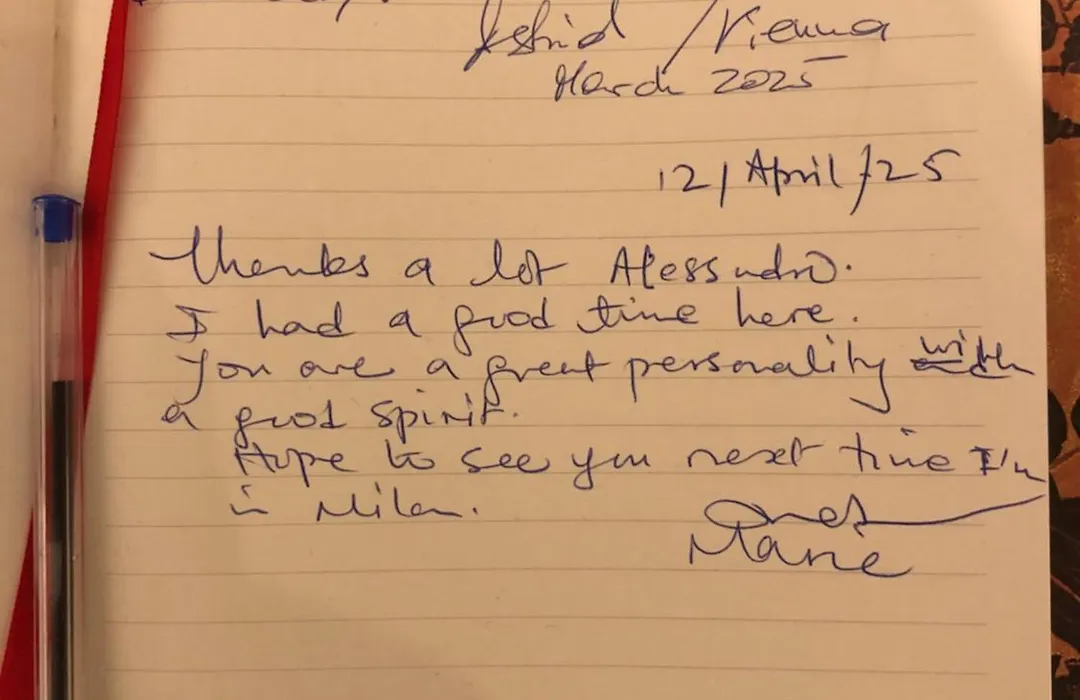 Astrid / Vienna
March 2025
12 / April / 25
Thanks a lot Alessandro.
I had a good time here.
You are a great personality with
a good spirit.
Hope to see you next time I'm
in Milan.
Marie